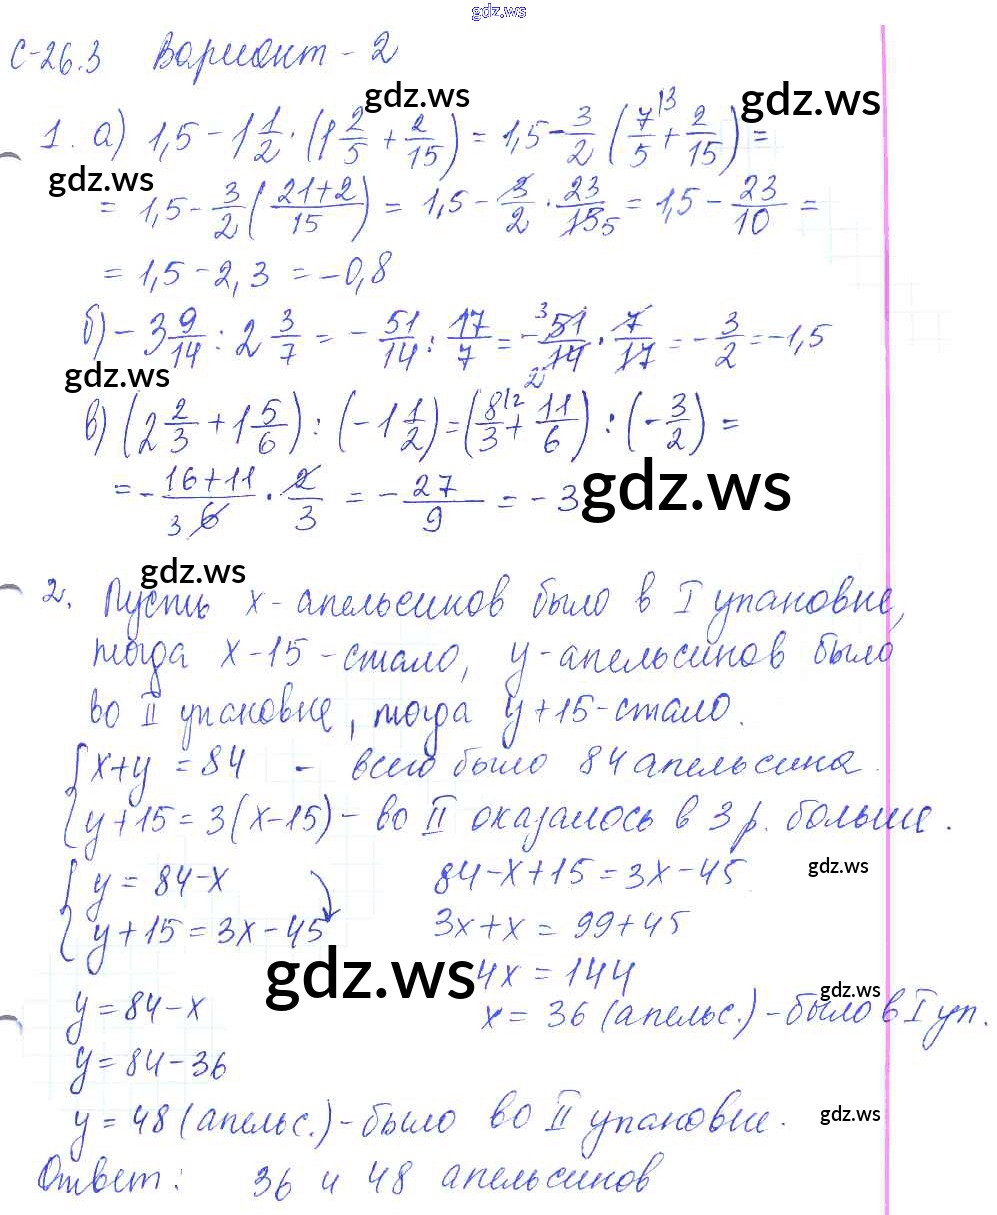 gdz.ws
С-26.3 Вариант - 2
gdz.ws gdz.ws
1. а) 1,5 - 1 1/2 · (1 2/5 + 2/15) = 1,5 - 3/2 (7/5 |3 + 2/15) =
gdz.ws
= 1,5 - 3/2 ( (21+2)/15 ) = 1,5 - 3/2 · 23/15 5 = 1,5 - 23/10 =
= 1,5 - 2,3 = -0,8
б) - 3 9/14 : 2 3/7 = - 51/14 : 17/7 = - 3 51/14 2 · 7/17 = - 3/2 = -1,5
gdz.ws
в) (2 2/3 + 1 5/6) : (-1 1/2) = (8/3 |2 + 11/6) : (- 3/2) =
= - (16+11)/6 3 · 2/3 = - 27/9 = - 3
gdz.ws
gdz.ws
2. Пусть x - апельсинов было в I упаковке,
тогда x-15 - стало, y - апельсинов было
во II упаковке, тогда y+15 - стало.
{ x+y = 84 - всего было 84 апельсина.
y+15 = 3(x-15) - во II оказалось в 3 р. больше.
{ y = 84-x 84-x+15 = 3x-45
gdz.ws
y+15 = 3x-45 3x+x = 99+45
gdz.ws 4x = 144
gdz.ws
y = 84-x x = 36 (апельс.) - было в I уп.
y = 84-36
y = 48 (апельс.) - было во II упаковке.
gdz.ws
Ответ: 36 и 48 апельсинов